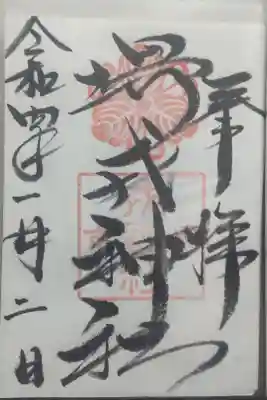 奉拝
神社
令和四年一月二日